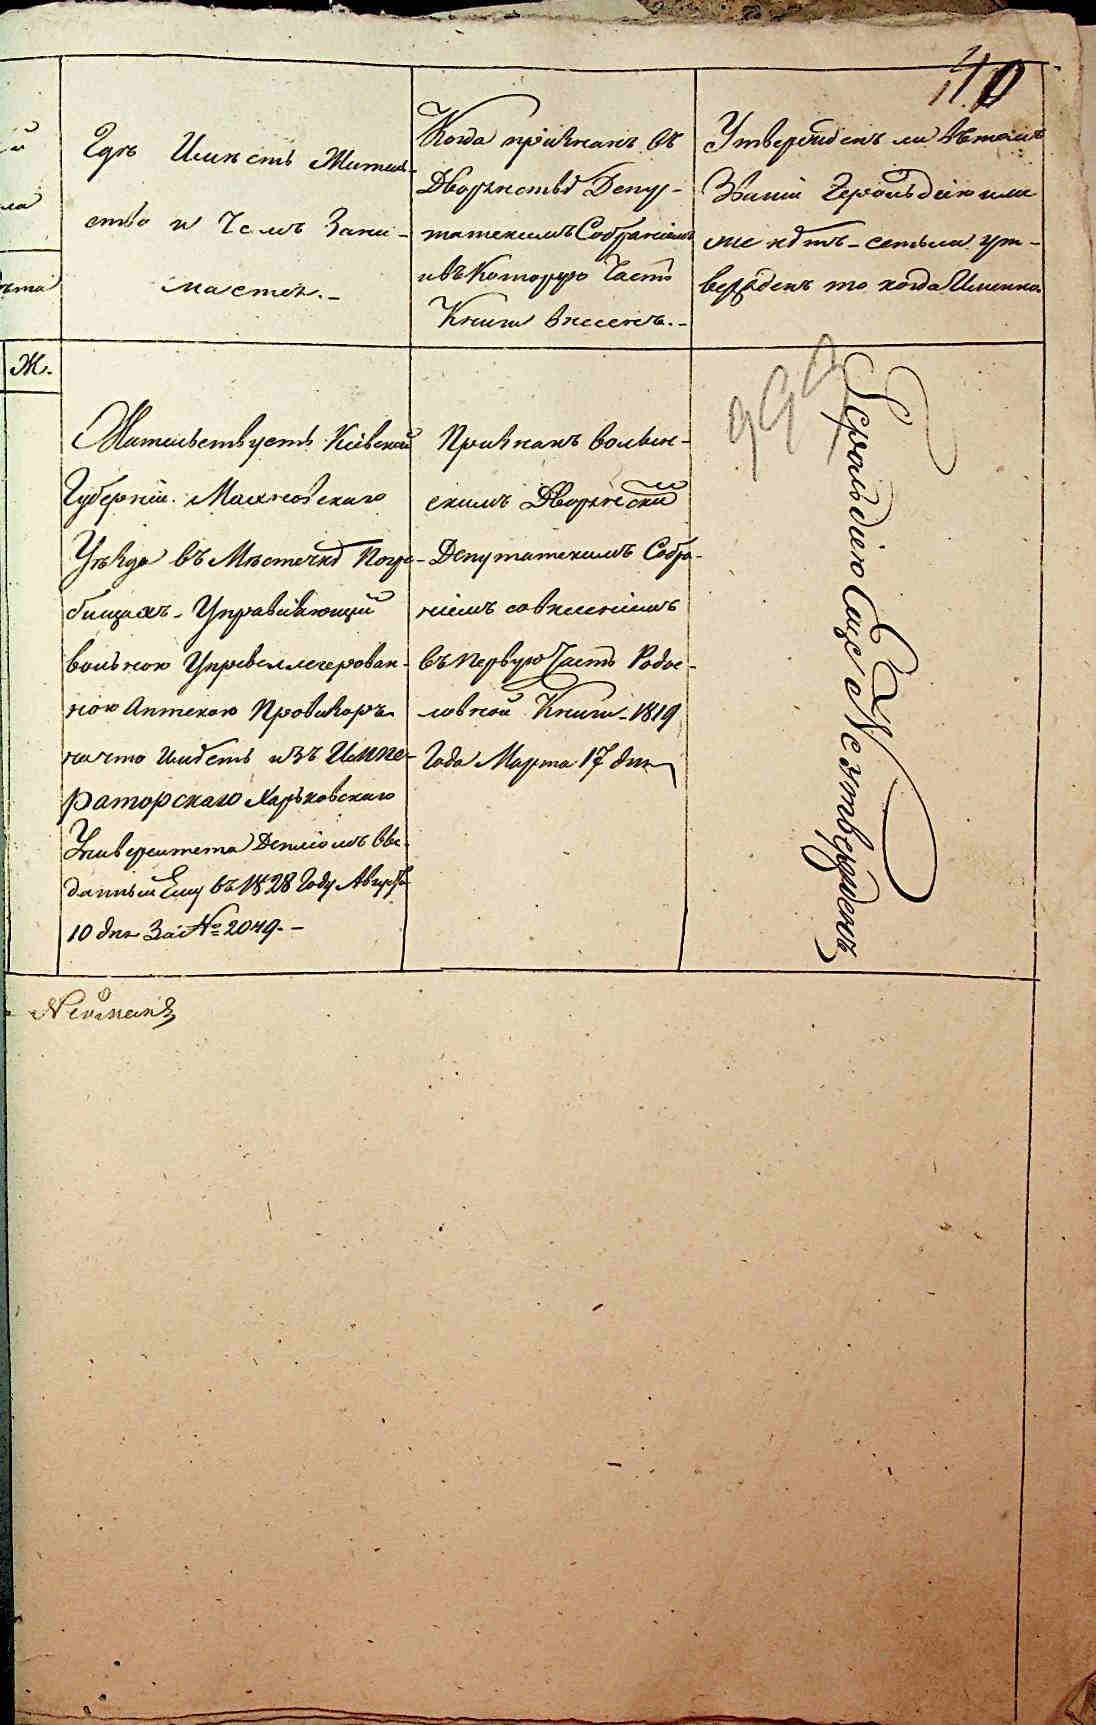 40
Гдѣ Имѣетъ Житель-
ство и Чемъ Зани-
мается.-
Когда признанъ въ
Дворянствѣ Депу-
татскимъ Собраніемъ
и въ Которую Часть
Книги внесенъ.-
Утвержденъ ли въ томъ
Званіи Герольдіею или
же нѣтъ - естьли ут-
вержденъ то когда Именно.
Ж.
Жительствуетъ Кіевской
Губерніи. Махновскаго
Уѣзда въ Мѣстечкѣ Погре-
бищахъ - Управляющій
вольною Упревеллегерован-
ною Аптекою Провизоръ
на что Имѣетъ изъ Импе-
раторскаго Харьковскаго
Университета Депломъ вы-
данный Ему въ 1828 Году Августа
10 дня За № 2049. -
Признанъ Волын-
скимъ Дворянский
Депутатскимъ Собра-
ніемъ совнесеніемъ
въ Первую Часть Родос-
ловной Книги - 1819
Года Марта 17 дня
Герольдіею Еще Не утвержденъ
Нейманъ